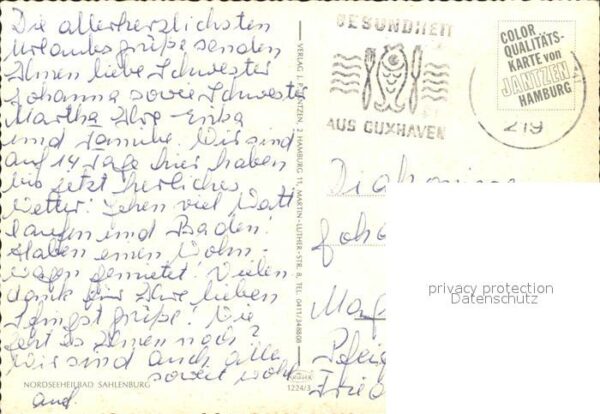 Die allerherzlichsten
Urlaubsgrüße senden
Ihnen liebe Schwester
Johanna sowie Schwester
Martha Ihre Erika
und Familie. Wir sind
auf 14 Tage hier haben
bis jetzt herrliches
Wetter! Gehen viel Watt
laufen und Baden!
Haben einen Wohn-
wagen gemietet! Vielen
dank für Ihre lieben
Pfingstgrüße! Wie
geht es Ihnen noch?
Wir sind auch alle
soweit wohl
auf.
NORDSEEHEILBAD SAHLENBURG
VERLAG J. JANTZEN, 2 HAMBURG 11, MARTIN-LUTHER-STR. 8, TEL. 0411/348808
1224/3
GESUNDHEIT
AUS CUXHAVEN
219
COLOR
QUALITÄTS-
KARTE von
JANTZEN
HAMBURG
Diakonisse
Joha
privacy protection
Datenschutz
Fried